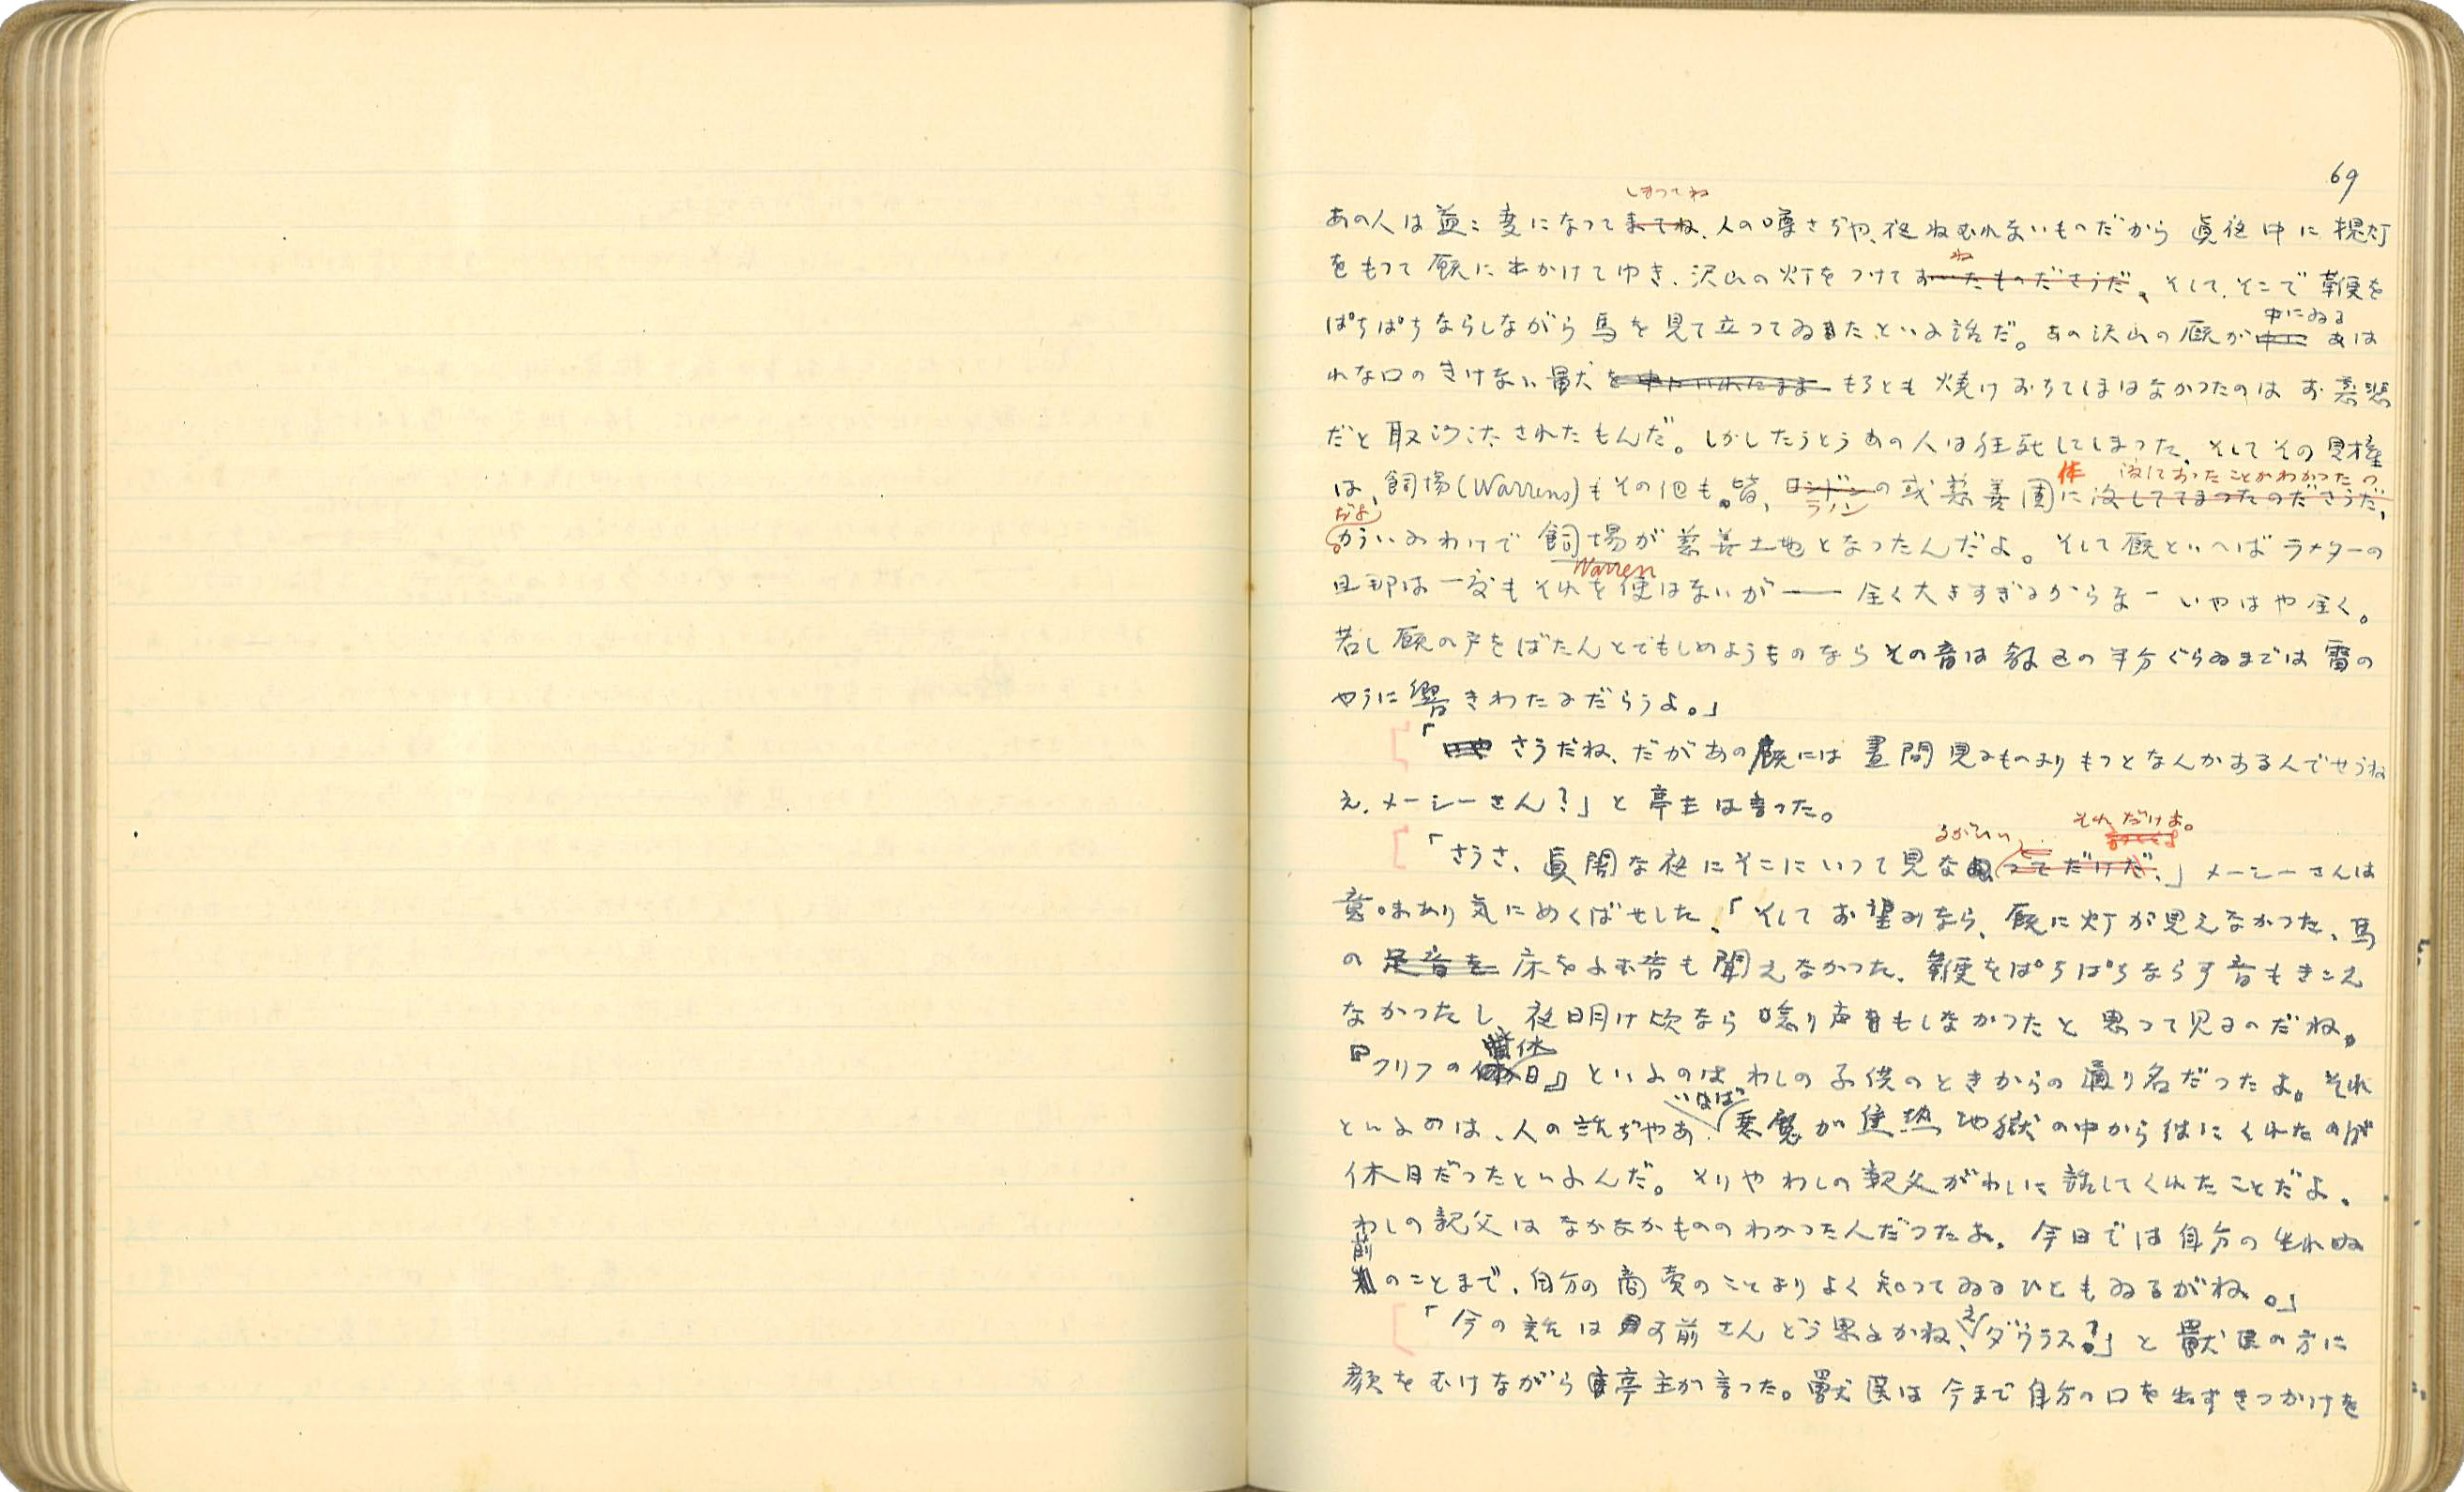 69
しまつてね
あの人は益々変になつて来てね、人の噂さぢや、夜ねむれないものだから眞夜中に提灯
ね
をもつて厩に出かけてゆき、沢山の灯をつけておいたものださうだ、そして、そこで鞭を
中にゐる
ぱちぱちならしながら馬を見て立つてゐたといふ話だ。あの沢山の厩が中に あは
れな口のきけない獣を中にいれたまま もろとも焼けおちてしまはなかつたのは お慈悲
だと取沙汰されたもんだ。しかしたうとうあの人は狂死してしまつた、そしてその財産
体 没しておつたことがわかつたの
は、飼場(Warrens)もその他も皆、ロンドンの或慈善團に没してしまつたのださうだ、
だよ ラノン
かういふわけで 飼場が慈善土地となつたんだよ。そして厩といへば ラメターの
Warren
旦那は一度もそれを使はないが――全く大きすぎるからな―いやはや全く。
若し厩の戸をばたんとでもしめようものならその音は教区の半分ぐらゐまでは雷の
やうに響きわたるだらうよ。」
「さうだね、だがあの厩には晝間見るものよりもつとなんかあるんでせうね
え、メーシーさん?」と亭主は言つた。
るがいい それだけよ。
「さうさ、眞闇な夜にそこにいつて見な つてだけだ、」メーシーさんは
意味あり気にめくばせした、「そしてお望みなら、厩に灯が見えなかつた、馬
の 足音を 床をふむ音も聞えなかつた、鞭をぱちぱちならす音もきこえ
なかつたし、夜明け頃なら唸り声もしなかつたと思つて見るのだね。
休
『クリフの 日』といふのは、わしの子供のときからの通り名だつたよ。それ
いはば
といふのは、人の話ぢやあ、悪魔が焦熱地獄の中から彼にくれたのが
休日だつたといふんだ。そりやわしの親父がわしに話してくれたことだよ。
わしの親父はなかなかもののわかつた人だつたよ。今日では自分の生れぬ
前
のことまで、自分の商売のことよりよく知つてゐるひともゐるがね。」
え
「今の話はお前さんどう思ふかね、ダウラス?」と獣医の方に
顔をむけながら亭主が言つた。獣医は今まで自分の口を出すきつかけを